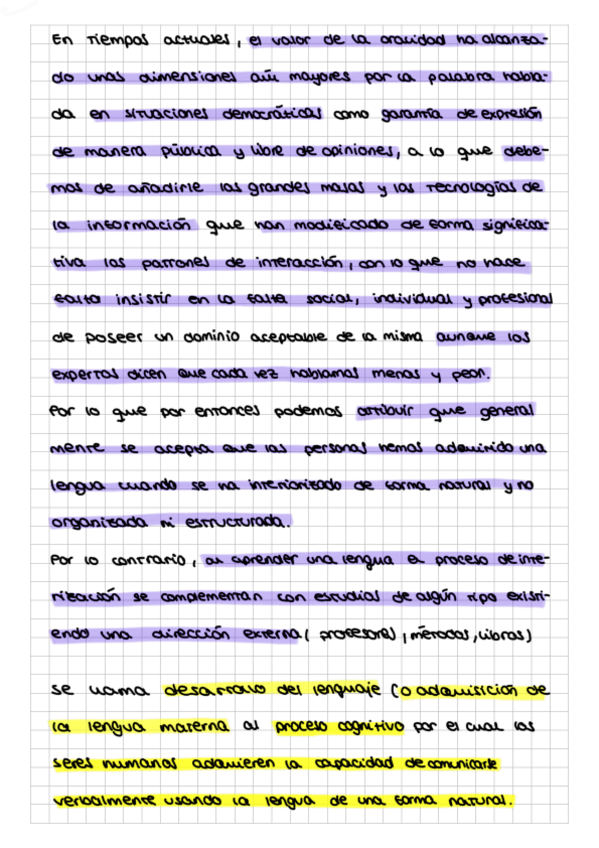 En tiempos actuales, el valor de la oralidad ha alcanza-
do unas dimensiones aún mayores por la palabra habla-
da en situaciones democráticas como garantía de expresión
de manera pública y libre de opiniones, a lo que debe-
mos de añadirle las grandes masas y las tecnologías de
la información que han modificado de forma significa-
tiva los patrones de interacción, con lo que no hace
falta insistir en la falta social, individual y profesional
de poseer un dominio aceptable de la misma aunque los
expertos dicen que cada vez hablamos menos y peor.
Por lo que por entonces podemos atribuir que general
mente se acepta que las personas hemos adquirido una
lengua cuando se ha interiorizado de forma natural y no
organizada ni estructurada.
Por lo contrario, al aprender una lengua el proceso de inte-
rización se complementan con estudios de algún tipo existi-
endo una dirección externa (profesores, métodos, libros)
se llama desarrollo del lenguaje (o adquisición de
la lengua materna al proceso cognitivo por el cual los
seres humanos adquieren la capacidad de comunicarse
verbalmente usando la lengua de una forma natural.